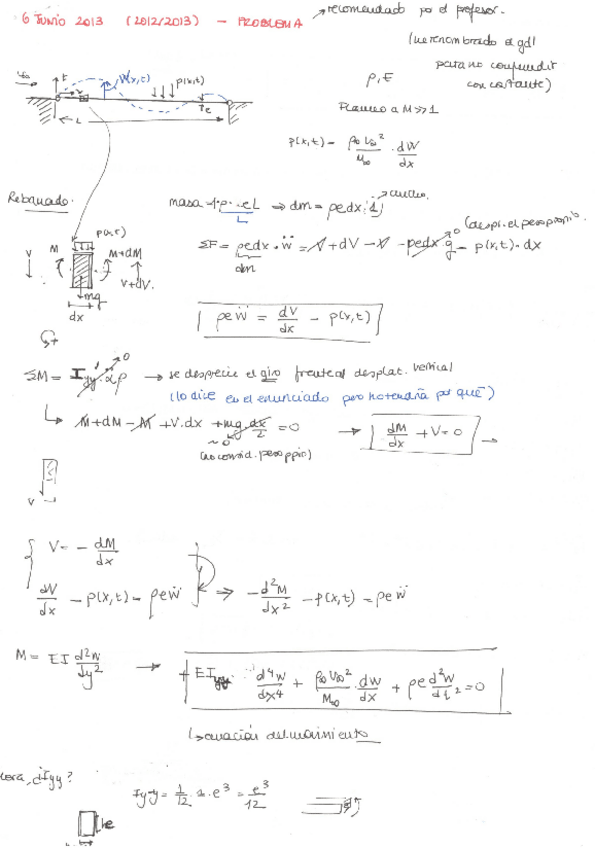 6 JUNIO 2013 (2012/2013) - PROBLEMA
recomendado por el profesor.
(he renombrado el gdl
para no confundir
con constante)
W(x,t)
p(x,t)
L
e
ρ, E
Flameo a M>>1
p(x,t) = ρ∞ U∞² / M∞ · dW/dx
Rebanada:
masa = 1·ρ·eL ⇒ dm = ρedx·1
ΣF = ρedx·ẅ = V + dV - V - ρedx·g - p(x,t)·dx
dm
0
p(x,t)
M
M+dM
V
V+dV.
mg
dx
ρeẅ = dV/dx - p(x,t)
ΣM = I
0
→ se desprecia el giro frente al desplaz. vertical
(lo dice en el enunciado pero no tendría por qué)
M + dM - M + V·dx + mg·dx/2 = 0 → dM/dx + V = 0
~0
(no consid. peso ppio)
V
V = - dM/dx
dV/dx - p(x,t) = ρeẅ ⇒ - d²M/dx² - p(x,t) = ρeẅ
M = EI d²w/dy² → + EI d⁴w/dx⁴ + ρ∞U∞²/M∞ · dw/dx + ρe d²w/dt² = 0
ecuación del movimiento
Iyy?
Iy-y = 1/12 · 1 · e³ = e³/12
e